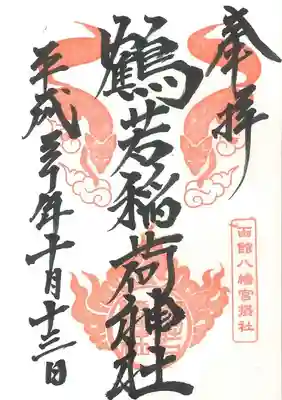 奉拝
函館八幡宮摂社
鶴若稲荷神社
平成三十年十月十三日